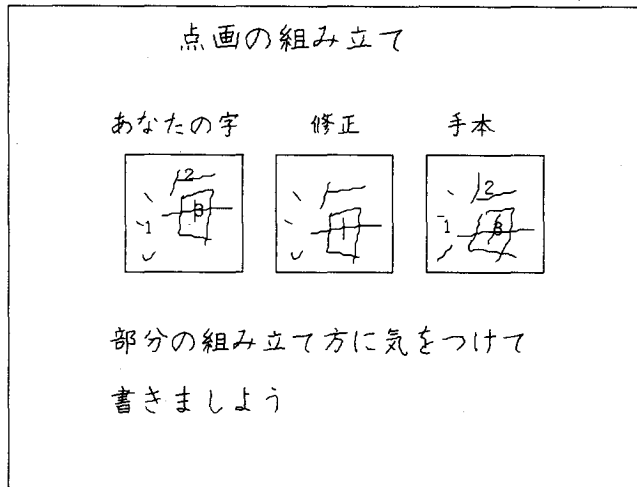 点画の組み立て
あなたの字 修正 手本
海 海 海
1 2 3 1 2 3
部分の組み立て方に気をつけて
書きましよう